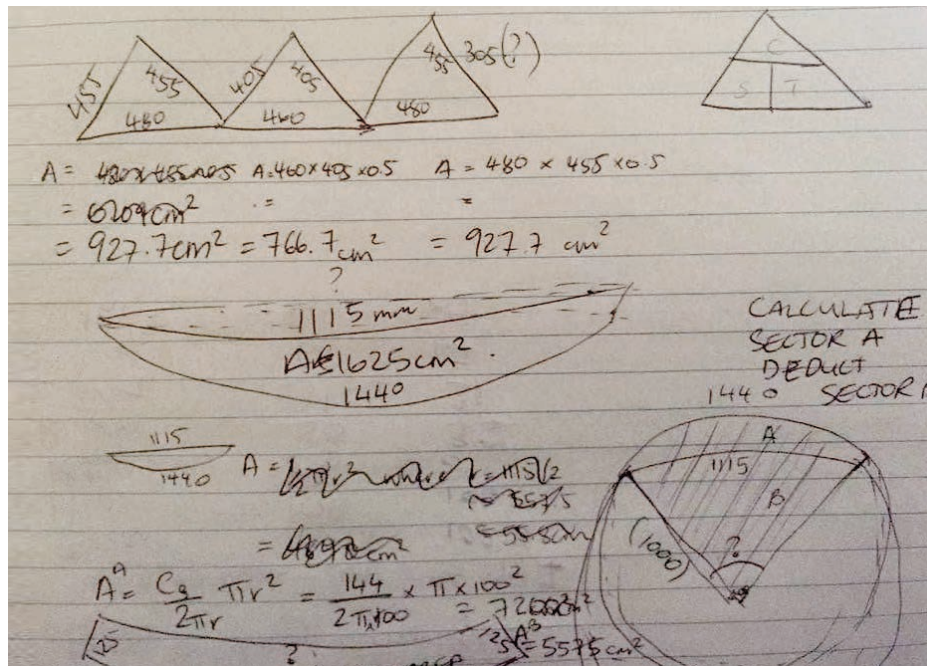 455 455 480 405 405 460 455 305(?) 480
C
S T
A = 480x455x0.5 A=460x405x0.5 A = 480 x 455 x0.5
= cm² = =
= 927.7cm² = 766.7cm² = 927.7 cm²
?
1115mm
A=1625cm².
1440
CALCULATE
SECTOR A
DEDUCT
1440 SECTOR
1115
1440
A =
A
1115
B
(1000)
?
Aᴬ = Ca/2πr πr² = 144/2π100 x π x 100²
= 7200cm²
Aᴮ = 5575cm²
125
?
125